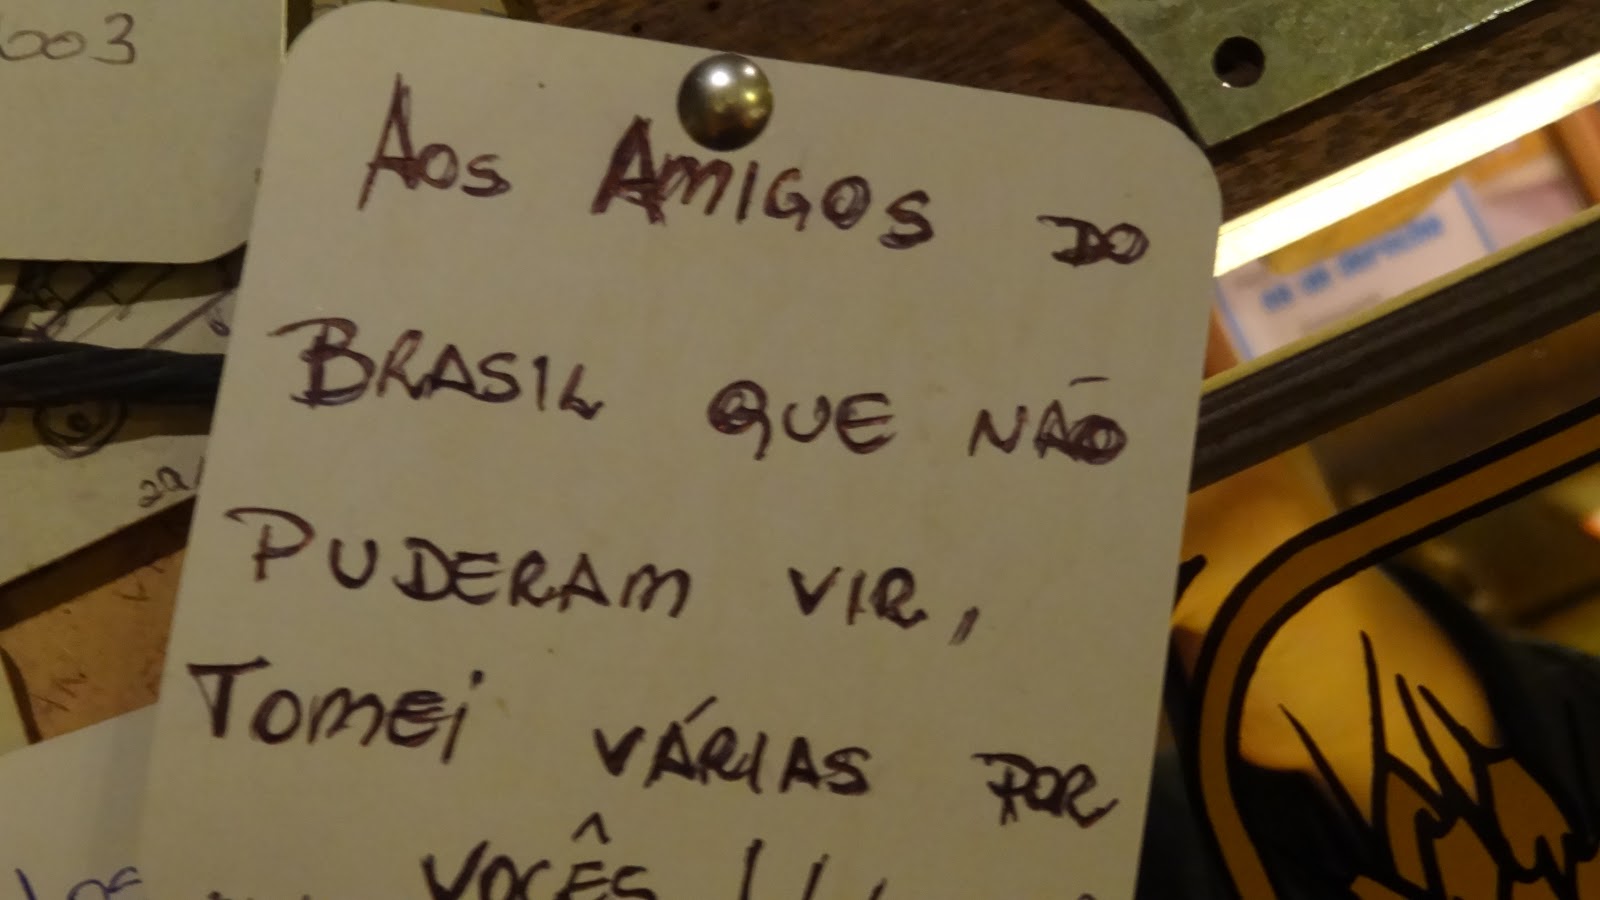 003
AOS AMIGOS DO
BRASIL QUE NÃO
PUDERAM VIR,
TOMEI VÁRIAS POR
VOCÊS !!!